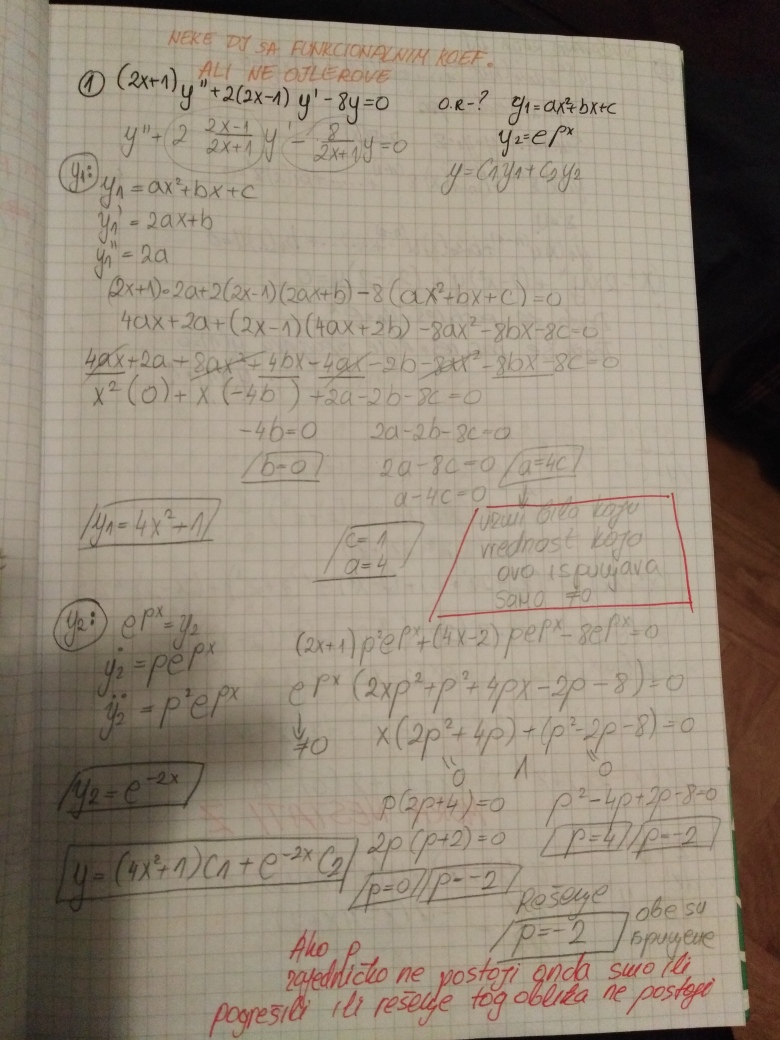 NEKE DJ SA FUNKCIONALNIM KOEF.
ALI NE OJLEROVE
① (2x+1)y''+2(2x-1)y'-8y=0 O.R-? y₁=ax²+bx+c
y₂=eᵖˣ
y''+2 (2x-1)/(2x+1) y' - 8/(2x+1) y=0 y=C₁y₁+C₂y₂
y₁: y₁=ax²+bx+c
y₁'=2ax+b
y₁''=2a
(2x+1)·2a+2(2x-1)(2ax+b)-8(ax²+bx+c)=0
4ax+2a+(2x-1)(4ax+2b)-8ax²-8bx-8c=0
4ax+2a+8ax²+4bx-4ax-2b-8ax²-8bx-8c=0
x²(0)+x(-4b)+2a-2b-8c=0
-4b=0 2a-2b-8c=0
b=0 2a-8c=0 a=4c
a-4c=0 ↓
y₁=4x²+1 c=1
a=4
uzmi bilo koju
vrednost koja
ovo ispunjava
samo ≠0
y₂: eᵖˣ=y₂ (2x+1)p²eᵖˣ+(4x-2)peᵖˣ-8eᵖˣ=0
ẏ₂=peᵖˣ eᵖˣ(2xp²+p²+4px-2p-8)=0
ÿ₂=p²eᵖˣ ↓
≠0 x(2p²+4p)+(p²-2p-8)=0
"0 ∧ "0
y₂=e⁻²ˣ p(2p+4)=0 p²-4p+2p-8=0
2p(p+2)=0 p=4 p=-2
y=(4x²+1)C₁+e⁻²ˣC₂ p=0 p=-2
Rešenje
p=-2 obe su
ispunjene
Ako p
zajedničko ne postoji onda smo ili
pogrešili ili rešenje tog oblika ne postoji